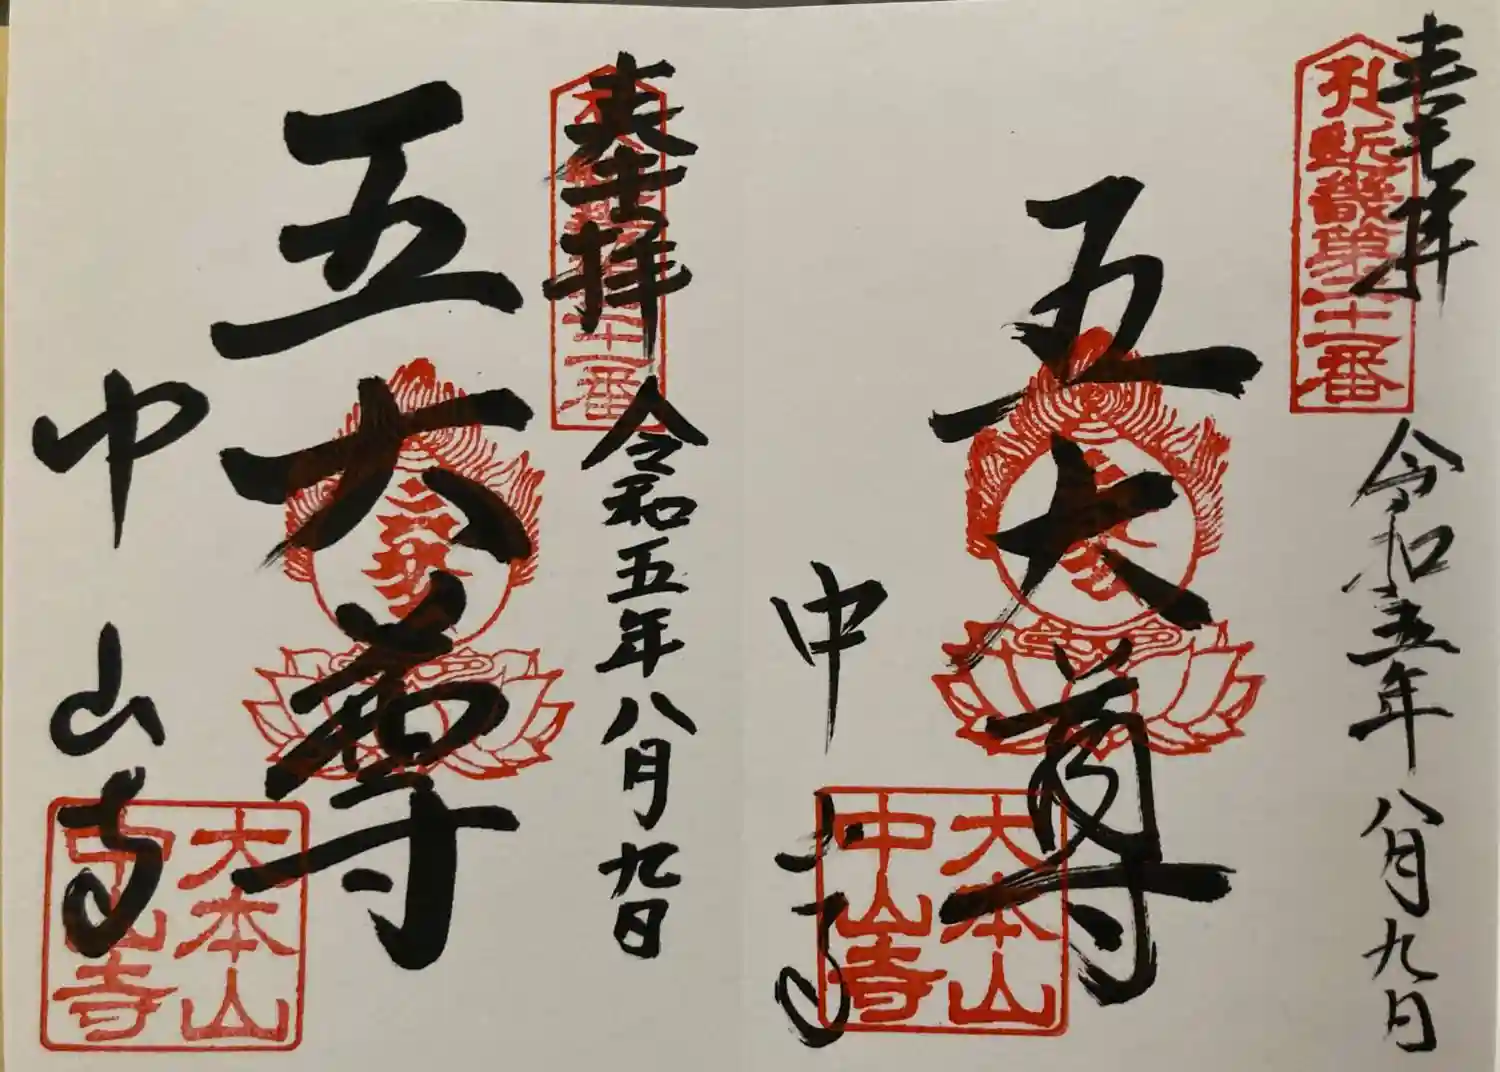 奉拝
令和五年八月九日
近畿第二十一番
五大尊
中山寺
大本山
中山寺
奉拝
令和五年八月九日
五大尊
中山寺
大本山
中山寺